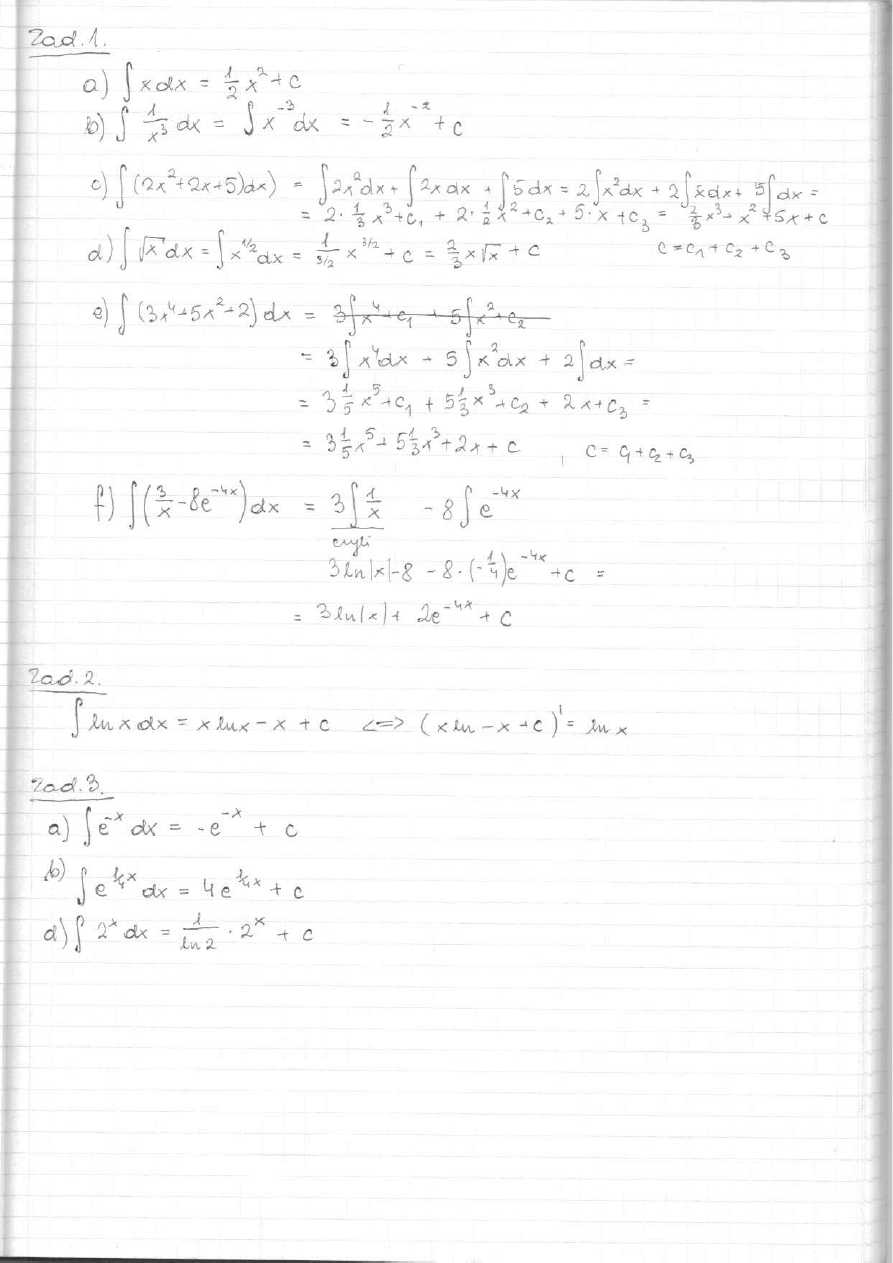 Zad.1.
a) ∫ x dx = 1/2 x² + c
b) ∫ 1/x³ dx = ∫ x⁻³ dx = - 1/2 x⁻² + c
c) ∫ (2x²+2x+5)dx) = ∫2x²dx + ∫2x dx + ∫5dx = 2∫x²dx + 2∫xdx + 5∫dx =
= 2· 1/3 x³+c₁ + 2· 1/2 x² + c₂ + 5·x + c₃ = 2/3 x³ + x² + 5x + c
d) ∫ √x dx = ∫ x^(1/2) dx = 1/(3/2) x^(3/2) + c = 2/3 x√x + c c = c₁ + c₂ + c₃
e) ∫ (3x⁴+5x²+2) dx = 3∫x⁴+c₁ + 5∫x²+c₂
= 3∫x⁴dx + 5∫x²dx + 2∫dx =
= 3 1/5 x⁵+c₁ + 5 1/3 x³+c₂ + 2x+c₃ =
= 3 1/5 x⁵ + 5 1/3 x³ + 2x + c , c = c₁+c₂+c₃
f) ∫(3/x - 8e^(-4x)) dx = 3∫ 1/x - 8∫e^(-4x)
czyli
3ln|x|-8 - 8·(-1/4)e^(-4x) + c =
= 3ln|x| + 2e^(-4x) + c
Zad.2.
∫ ln x dx = x lnx - x + c <=> (x ln - x + c)' = ln x
Zad.3.
a) ∫e^(-x) dx = -e^(-x) + c
b) ∫ e^(1/4 x) dx = 4e^(1/4 x) + c
d) ∫ 2^x dx = 1/ln2 · 2^x + c